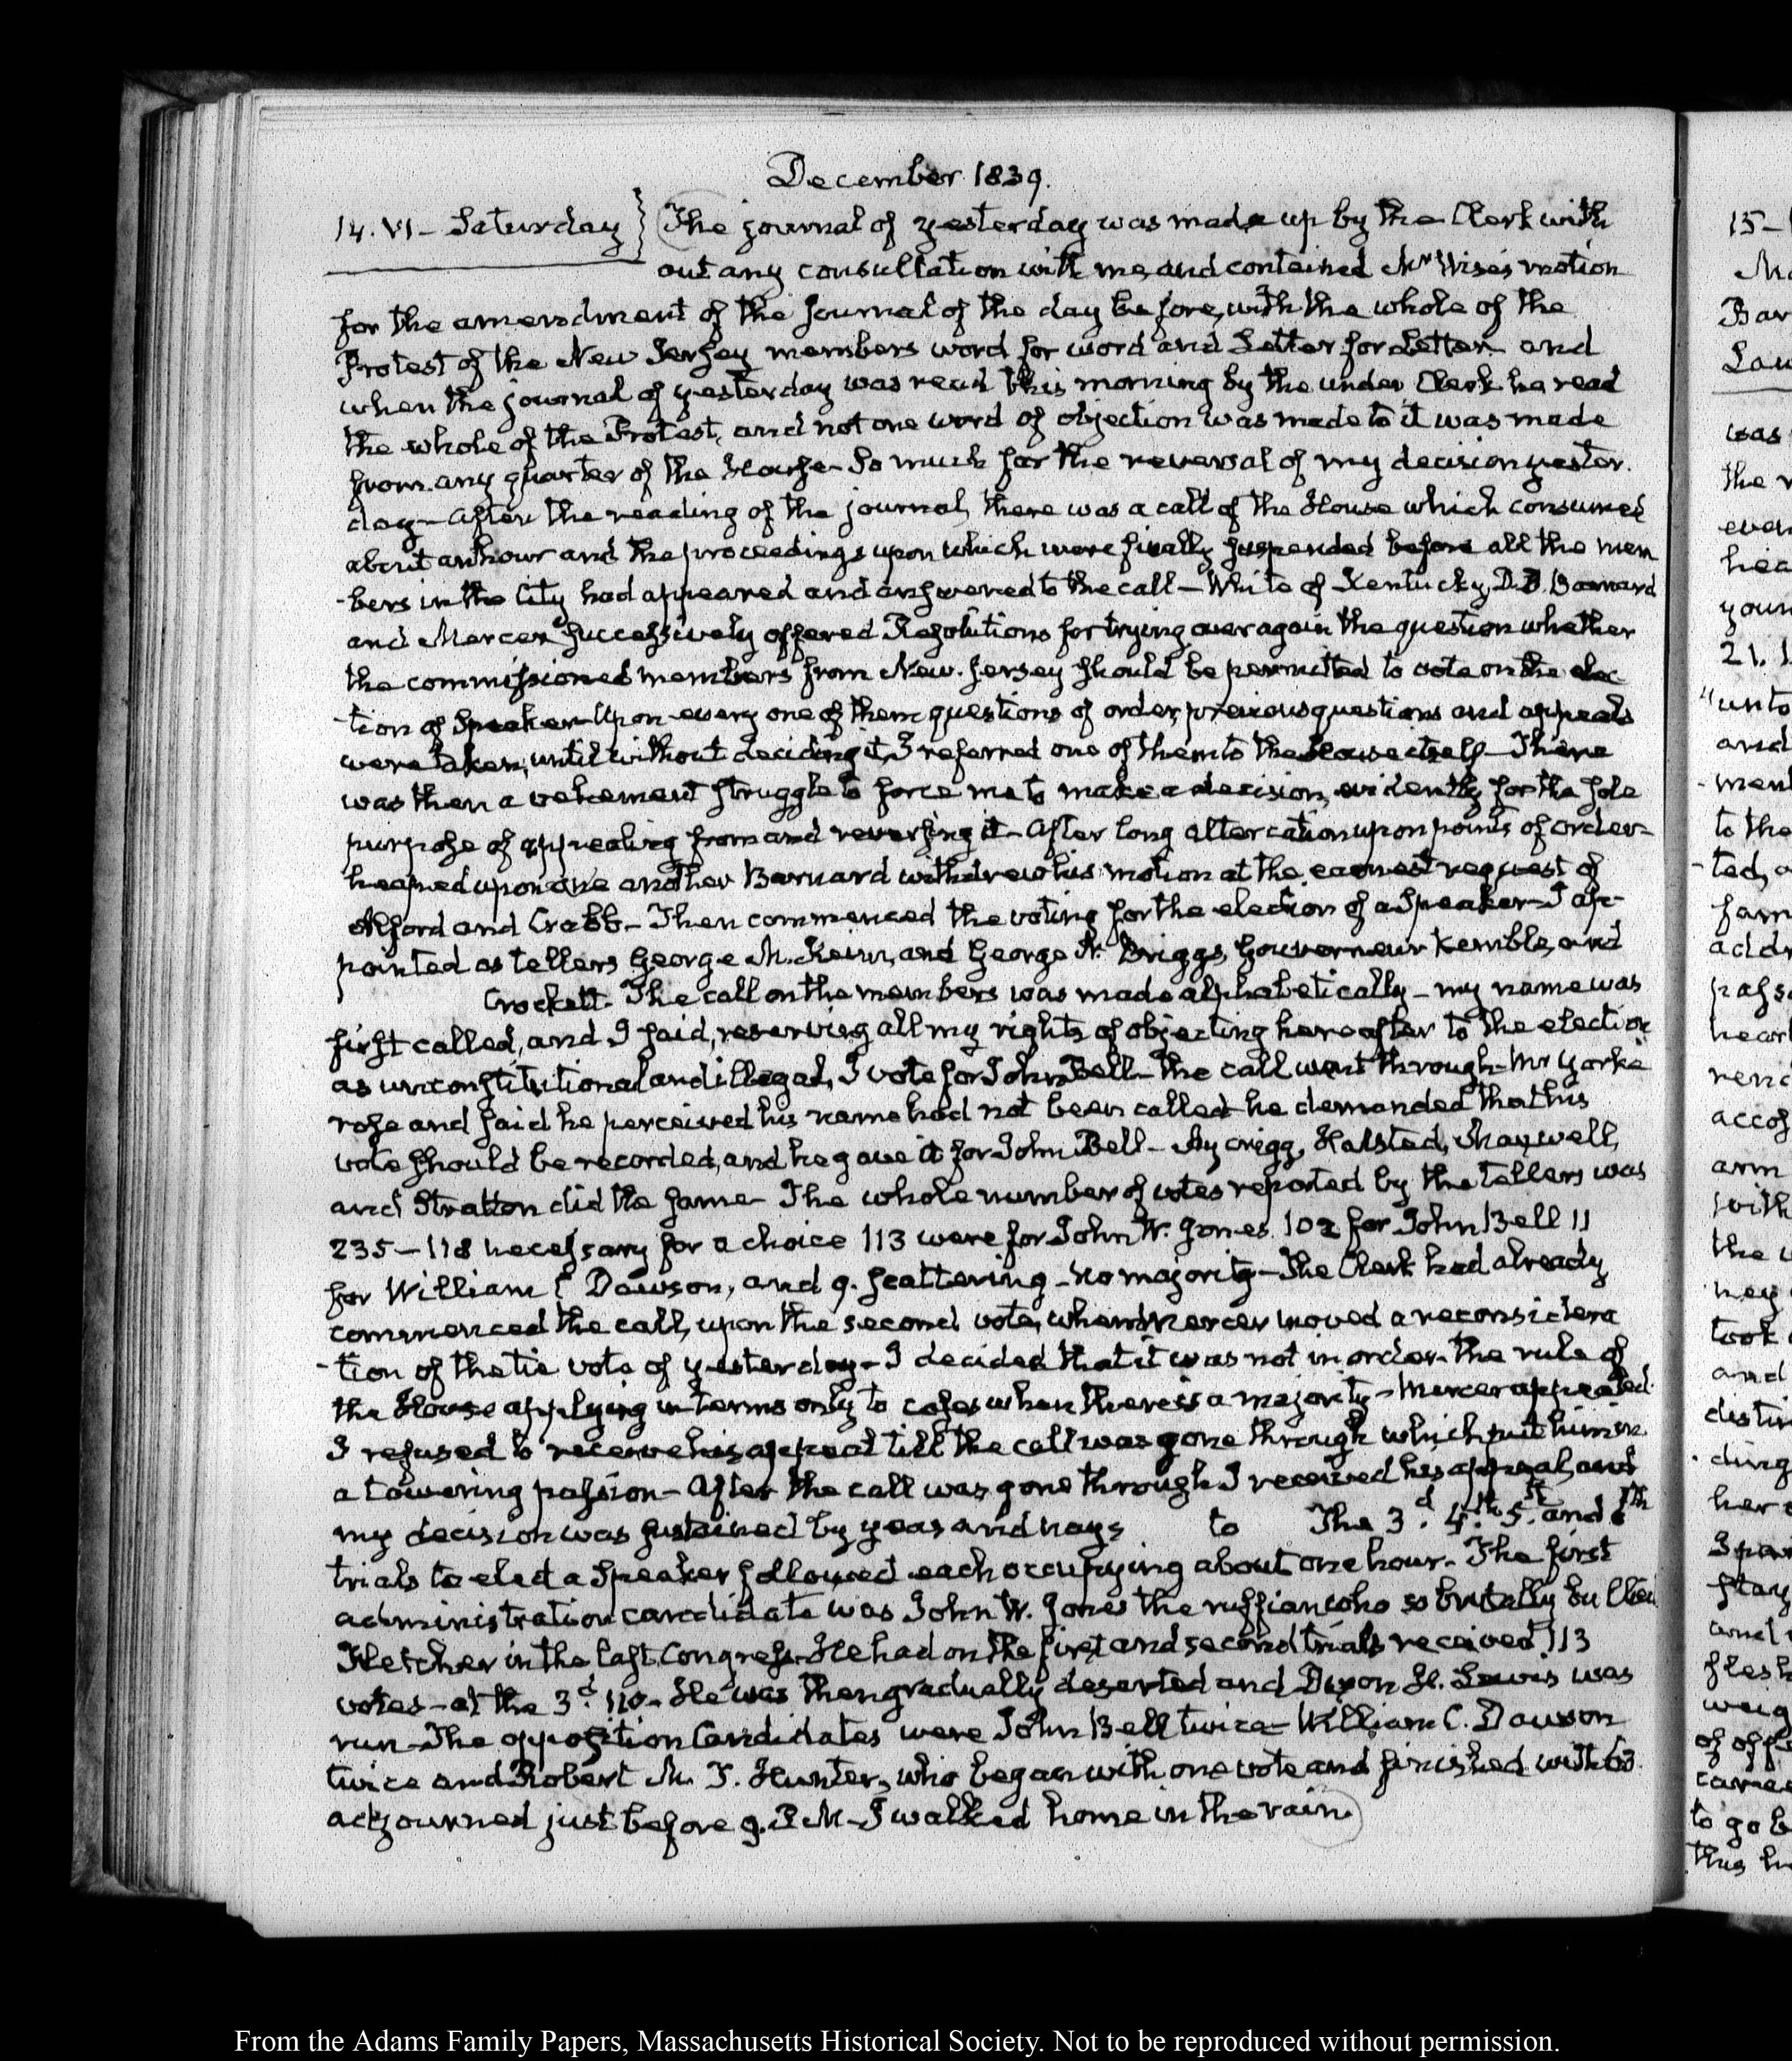 December 1839.
14. VI - Saturday } The journal of yesterday was made up by the Clerk with
out any consultation with me, and contained Mr Wise's motion
for the amendment of the journal of the day before, with the whole of the
Protest of the New Jersey members word for word and Letter for Letter - and
when the journal of yesterday was read this morning by the under Clerk he read
the whole of the Protest, and not one word of objection was made to it was made
from any quarter of the House - So much for the reversal of my decision yester-
day - After the reading of the journal, there was a call of the House which consumed
about an hour and the proceedings upon which were finally suspended before all the mem
-bers in the City had appeared and answered to the call - White of Kentucky, D. D. Barnard
and Mercer successively offered Resolutions for trying over again the question whether
the commissioned members from New-Jersey should be permitted to vote on the elec
-tion of Speaker - Upon every one of them questions of order, previous questions and appeals
were taken, until without deciding it, I referred one of them to the House itself - There
was then a vehement struggle to force me to make a decision, evidently for the sole
purpose of appealing from and reversing it - After long altercation upon points of order
heaped upon one another Barnard withdrew his motion at the earnest request of
Alford and Crabb - Then commenced the voting for the election of a Speaker - I ap-
pointed as tellers George M. Keim, and George N. Briggs, Gouverneur Kemble, and
Crockett. The call on the members was made alphabetically - my name was
first called, and I said, reserving all my rights of objecting hereafter to the election
as unconstitutional and illegal, I vote for John Bell - the call went through - Mr Yorke
rose and said he perceived his name had not been called - he demanded that his
vote should be recorded, and he gave it for John Bell - Aycrigg, Halsted, Maxwell,
and Stratton did the same - The whole number of votes reported by the tellers was
235 - 118 necessary for a choice 113 were for John W. Jones. 102 for John Bell 11
for William C Dawson, and 9. scattering - no majority - The Clerk had already
commenced the call, upon the second vote, when Mercer moved a reconsidera
-tion of the tie vote of yesterday - I decided that it was not in order - the rule of
the House applying in terms only to cases when there is a majority - Mercer appealed
I refused to receive his appeal till the call was gone through which put him in
a towering passion - After the call was gone through I received his appeal, and
my decision was sustained by yeas and nays to The 3d. 4th. 5th. and 6th
trials to elect a Speaker followed each occupying about one hour - The first
administration candidate was John W. Jones the ruffian who so brutally bullied
Fletcher in the last Congress - He had on the first and second trials received 113
votes - at the 3d. 110 - He was then gradually deserted and Dixon H. Lewis was
run - The opposition Candidates were John Bell twice - William C. Dawson
twice and Robert M. T. Hunter, who began with one vote and finished with 63.
adjourned just before 9. P.M - I walked home in the rain.
From the Adams Family Papers, Massachusetts Historical Society. Not to be reproduced without permission.